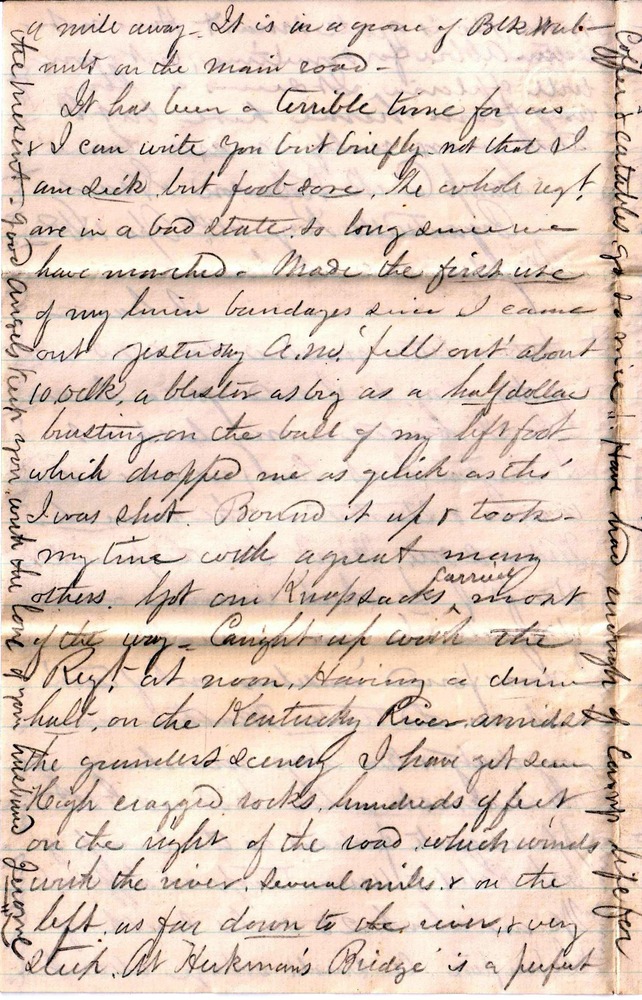 a mile away - It is in a grove of Blk Wal-
nuts on the main road -
It has been a terrible time for us
& I can write you but briefly - not that I
am sick, but foot sore. The whole regt.
are in a bad state, so long since we
have marched - Made the first use
of my linen bandages since I came
out yesterday A.M. 'fell out' about
10 oclk, a blister as big as a half dollar
bursting on the ball of my left foot -
which dropped me as quick as tho'
I was shot. Bound it up & took -
my time with a great many
others. Got our Knapsacks carried most
of the way - Caught up with the
Regt. at noon, Having a dinner
halt, on the Kentucky River amidst
the grandest scenery I have yet seen
High cragged rocks, hundreds of feet
on the right of the road, which winds
with the river, several miles, & on the
left, as far down to the river, & very
steep. At Hickman's Bridge is a perfect
Coffee & eatables go so nice! Have had enough of Camp life for
the present - good Angels keep you, with the love of your husband Jerome